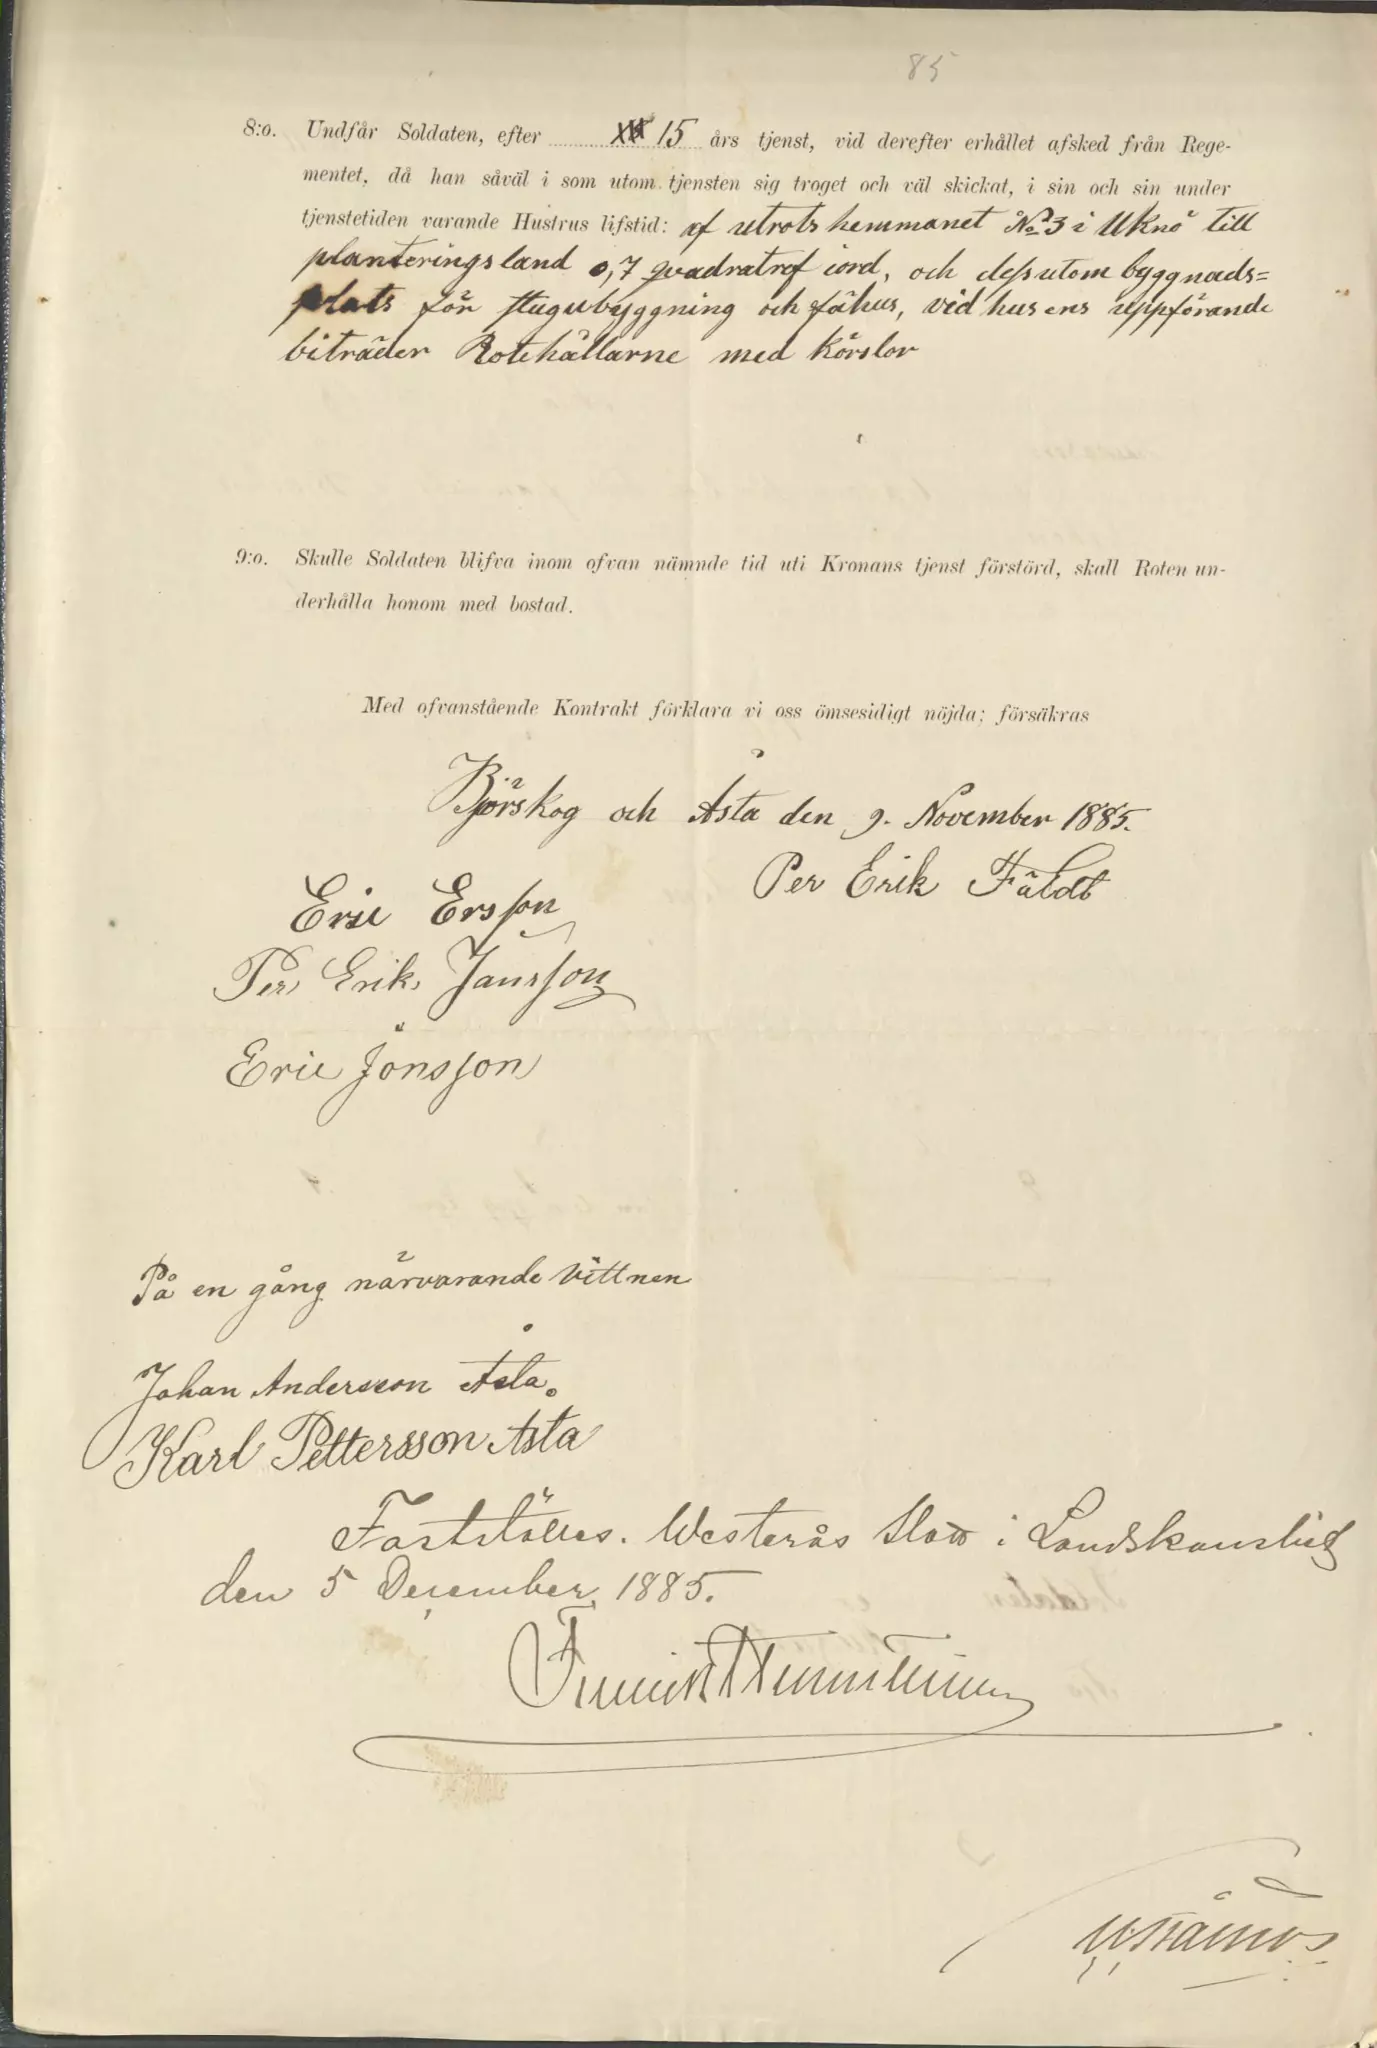 85
8:o. Undfår Soldaten, efter 15 års tjenst, vid derefter erhållet afsked från Rege-
mentet, då han såväl i som utom tjensten sig troget och väl skickat, i sin och sin under
tjenstetiden varande Hustrus lifstid: af utrots hemmanet No 3 i Uknö till
planteringsland 0,7 qvadratref jord, och dessutom byggnads=
plats för stugubyggning och fähus, vid husens uppförande
biträder Rotehållarne med körslor
9:o. Skulle Soldaten blifva inom ofvan nämnde tid uti Kronans tjenst förstörd, skall Roten un-
derhålla honom med bostad.
Med ofvanstående Kontrakt förklara vi oss ömsesidigt nöjda; försäkras
Björskog och Åsta den 9. November 1885.
Per Erik Fäldt
Eric Ersson
Per Erik Jansson
Eric Jönsson
På en gång närvarande Vittnen
Johan Andersson Åsta.
Karl Pettersson Åsta
Fastställes. Westerås Slott i Landskansliet
den 5 December 1885.